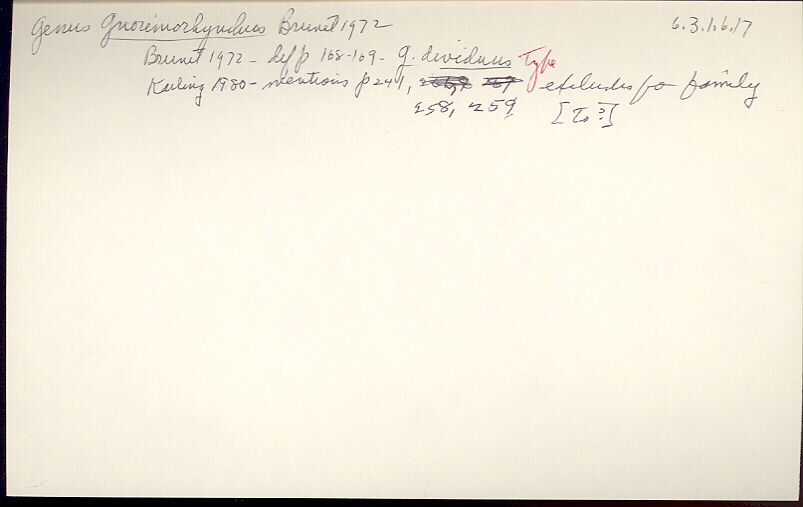 Genus Gnorimorhynchus Brunet 1972 6.3.1.6.17
Brunet 1972 - def p 168-169 - G. dividuus Type
Karling 1980 - mentions p 241, excludes fr family
258, 259 [To ?]